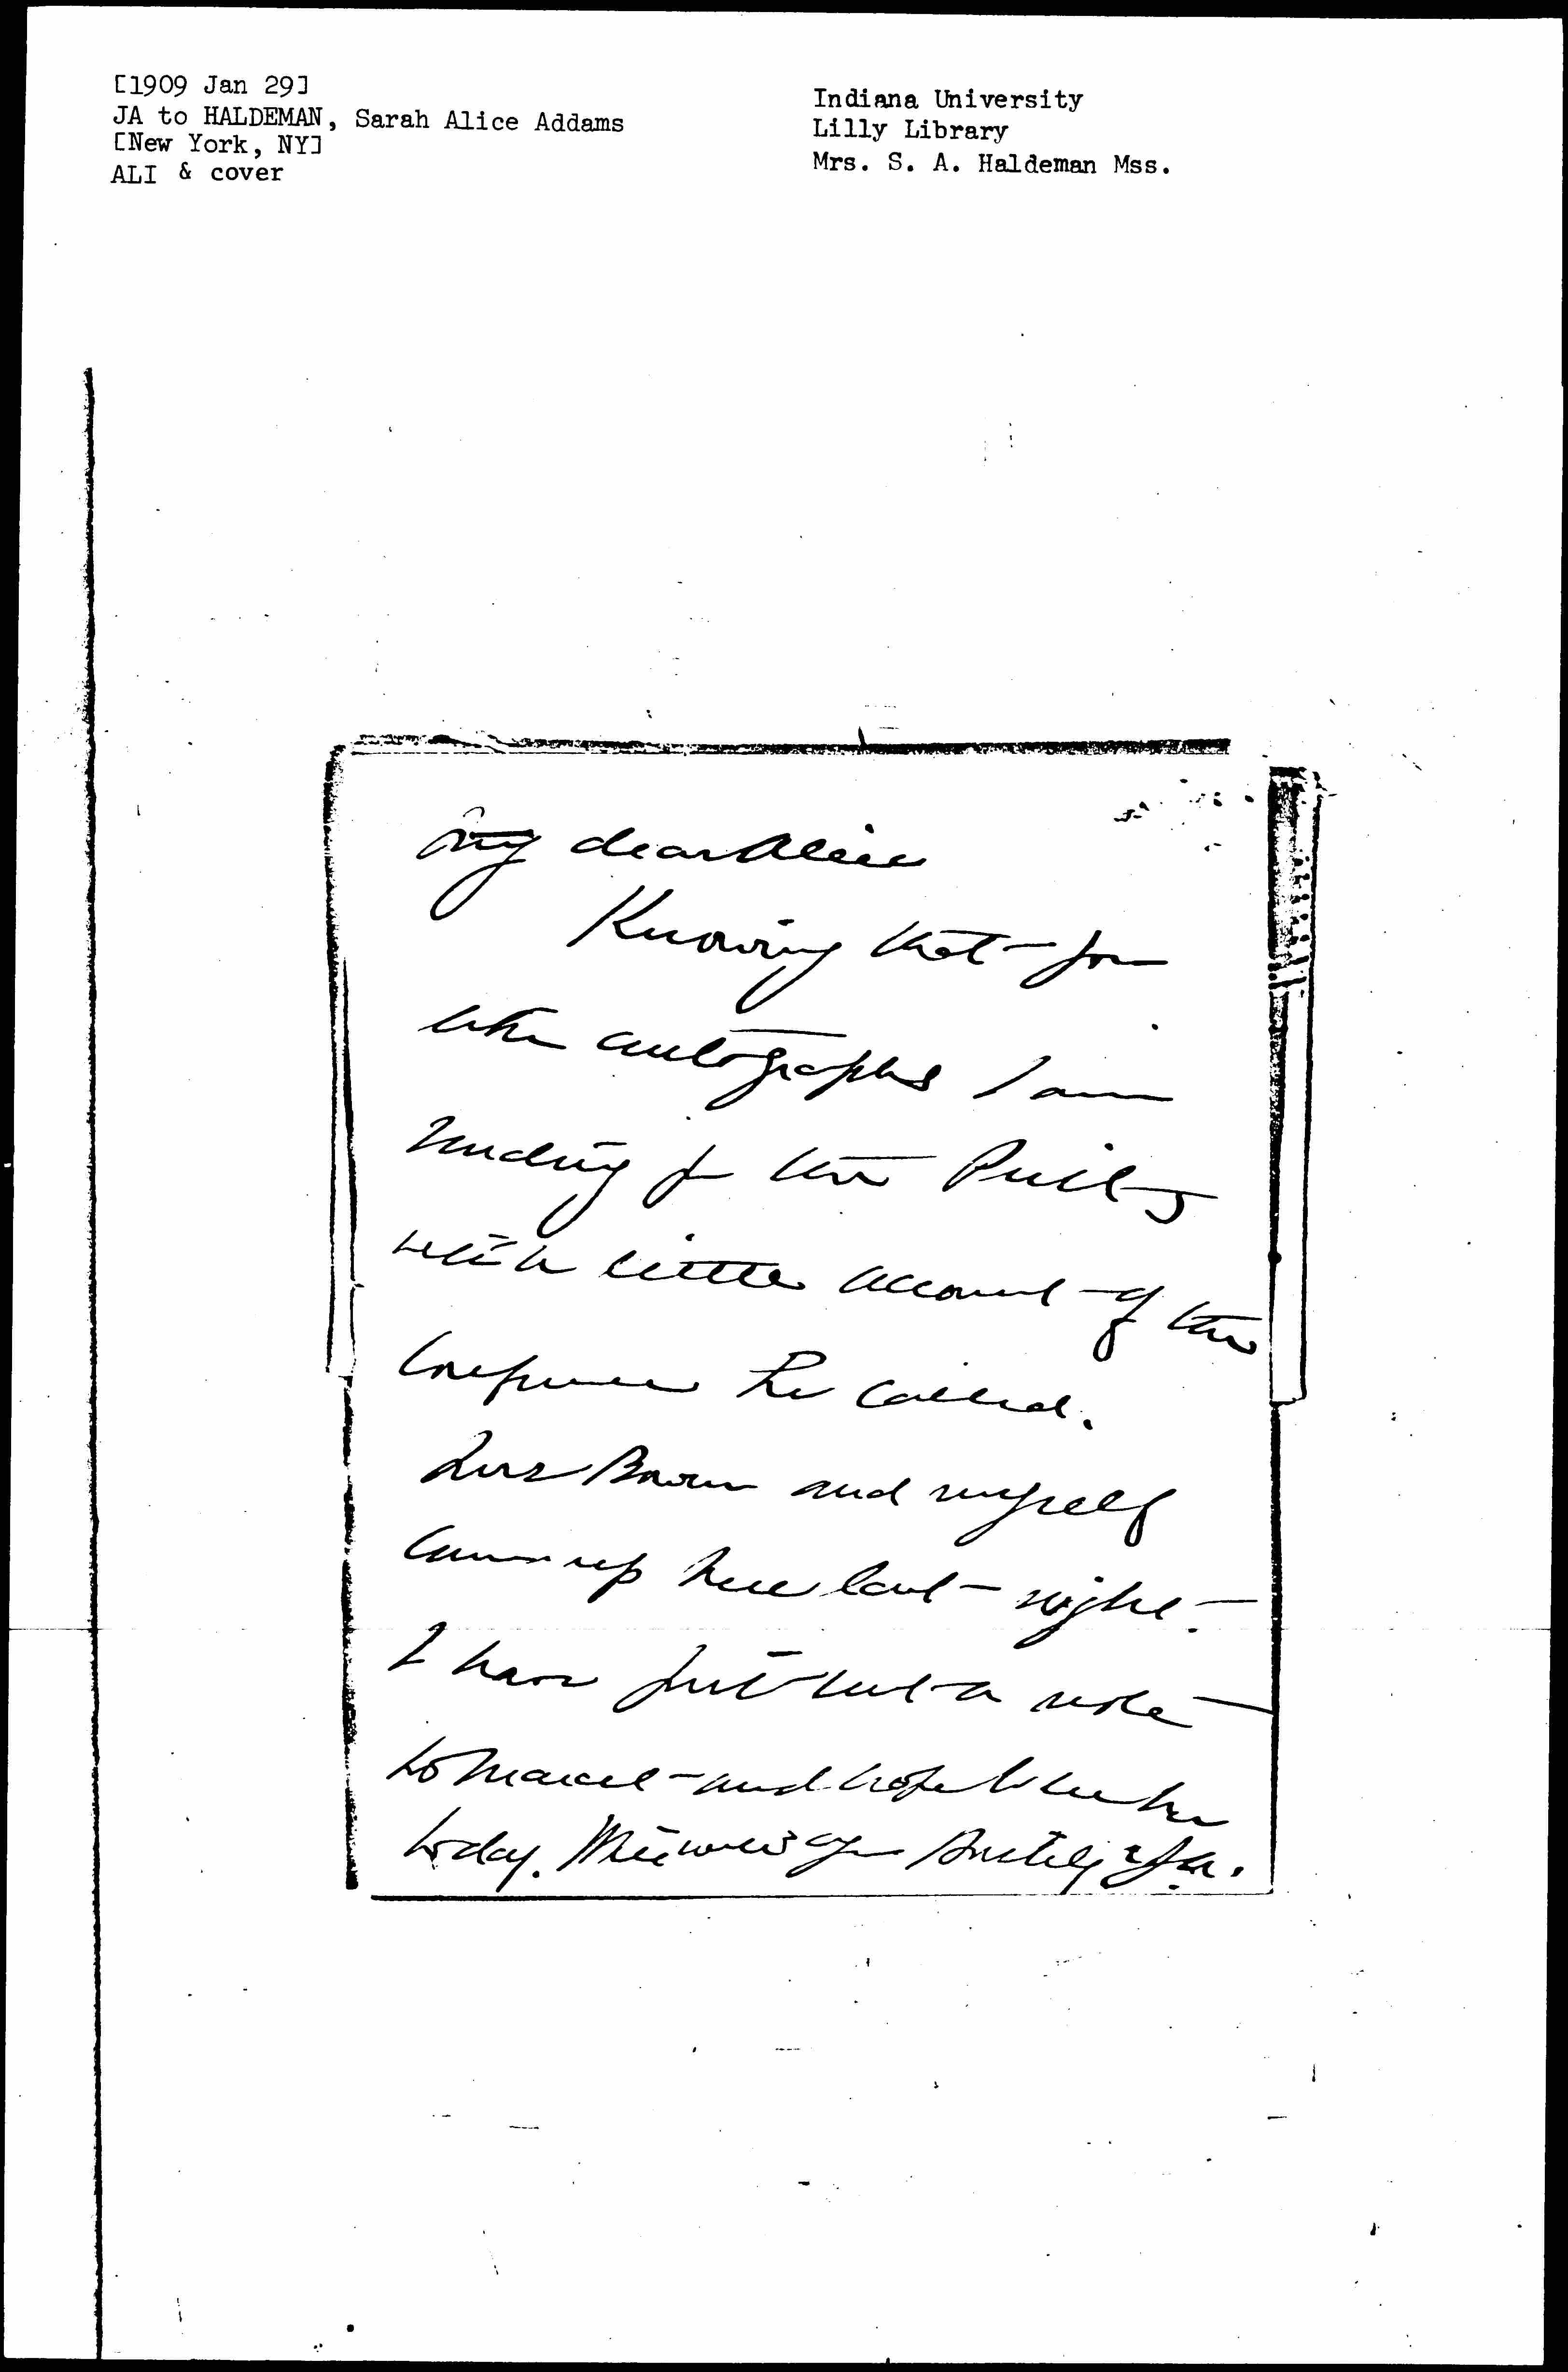 [1909 Jan 29]
JA to HALDEMAN, Sarah Alice Addams
[New York, NY]
ALI & cover
Indiana University
Lilly Library
Mrs. S. A. Haldeman Mss.
My dear Alice
Knowing that you
like autographs I am
sending you the
with little account of the
Conference he called.
Mrs Bowen and myself
came up here last night.
I have just sent a note
to Marcet and hope to see her
today. Always yrs J.A.